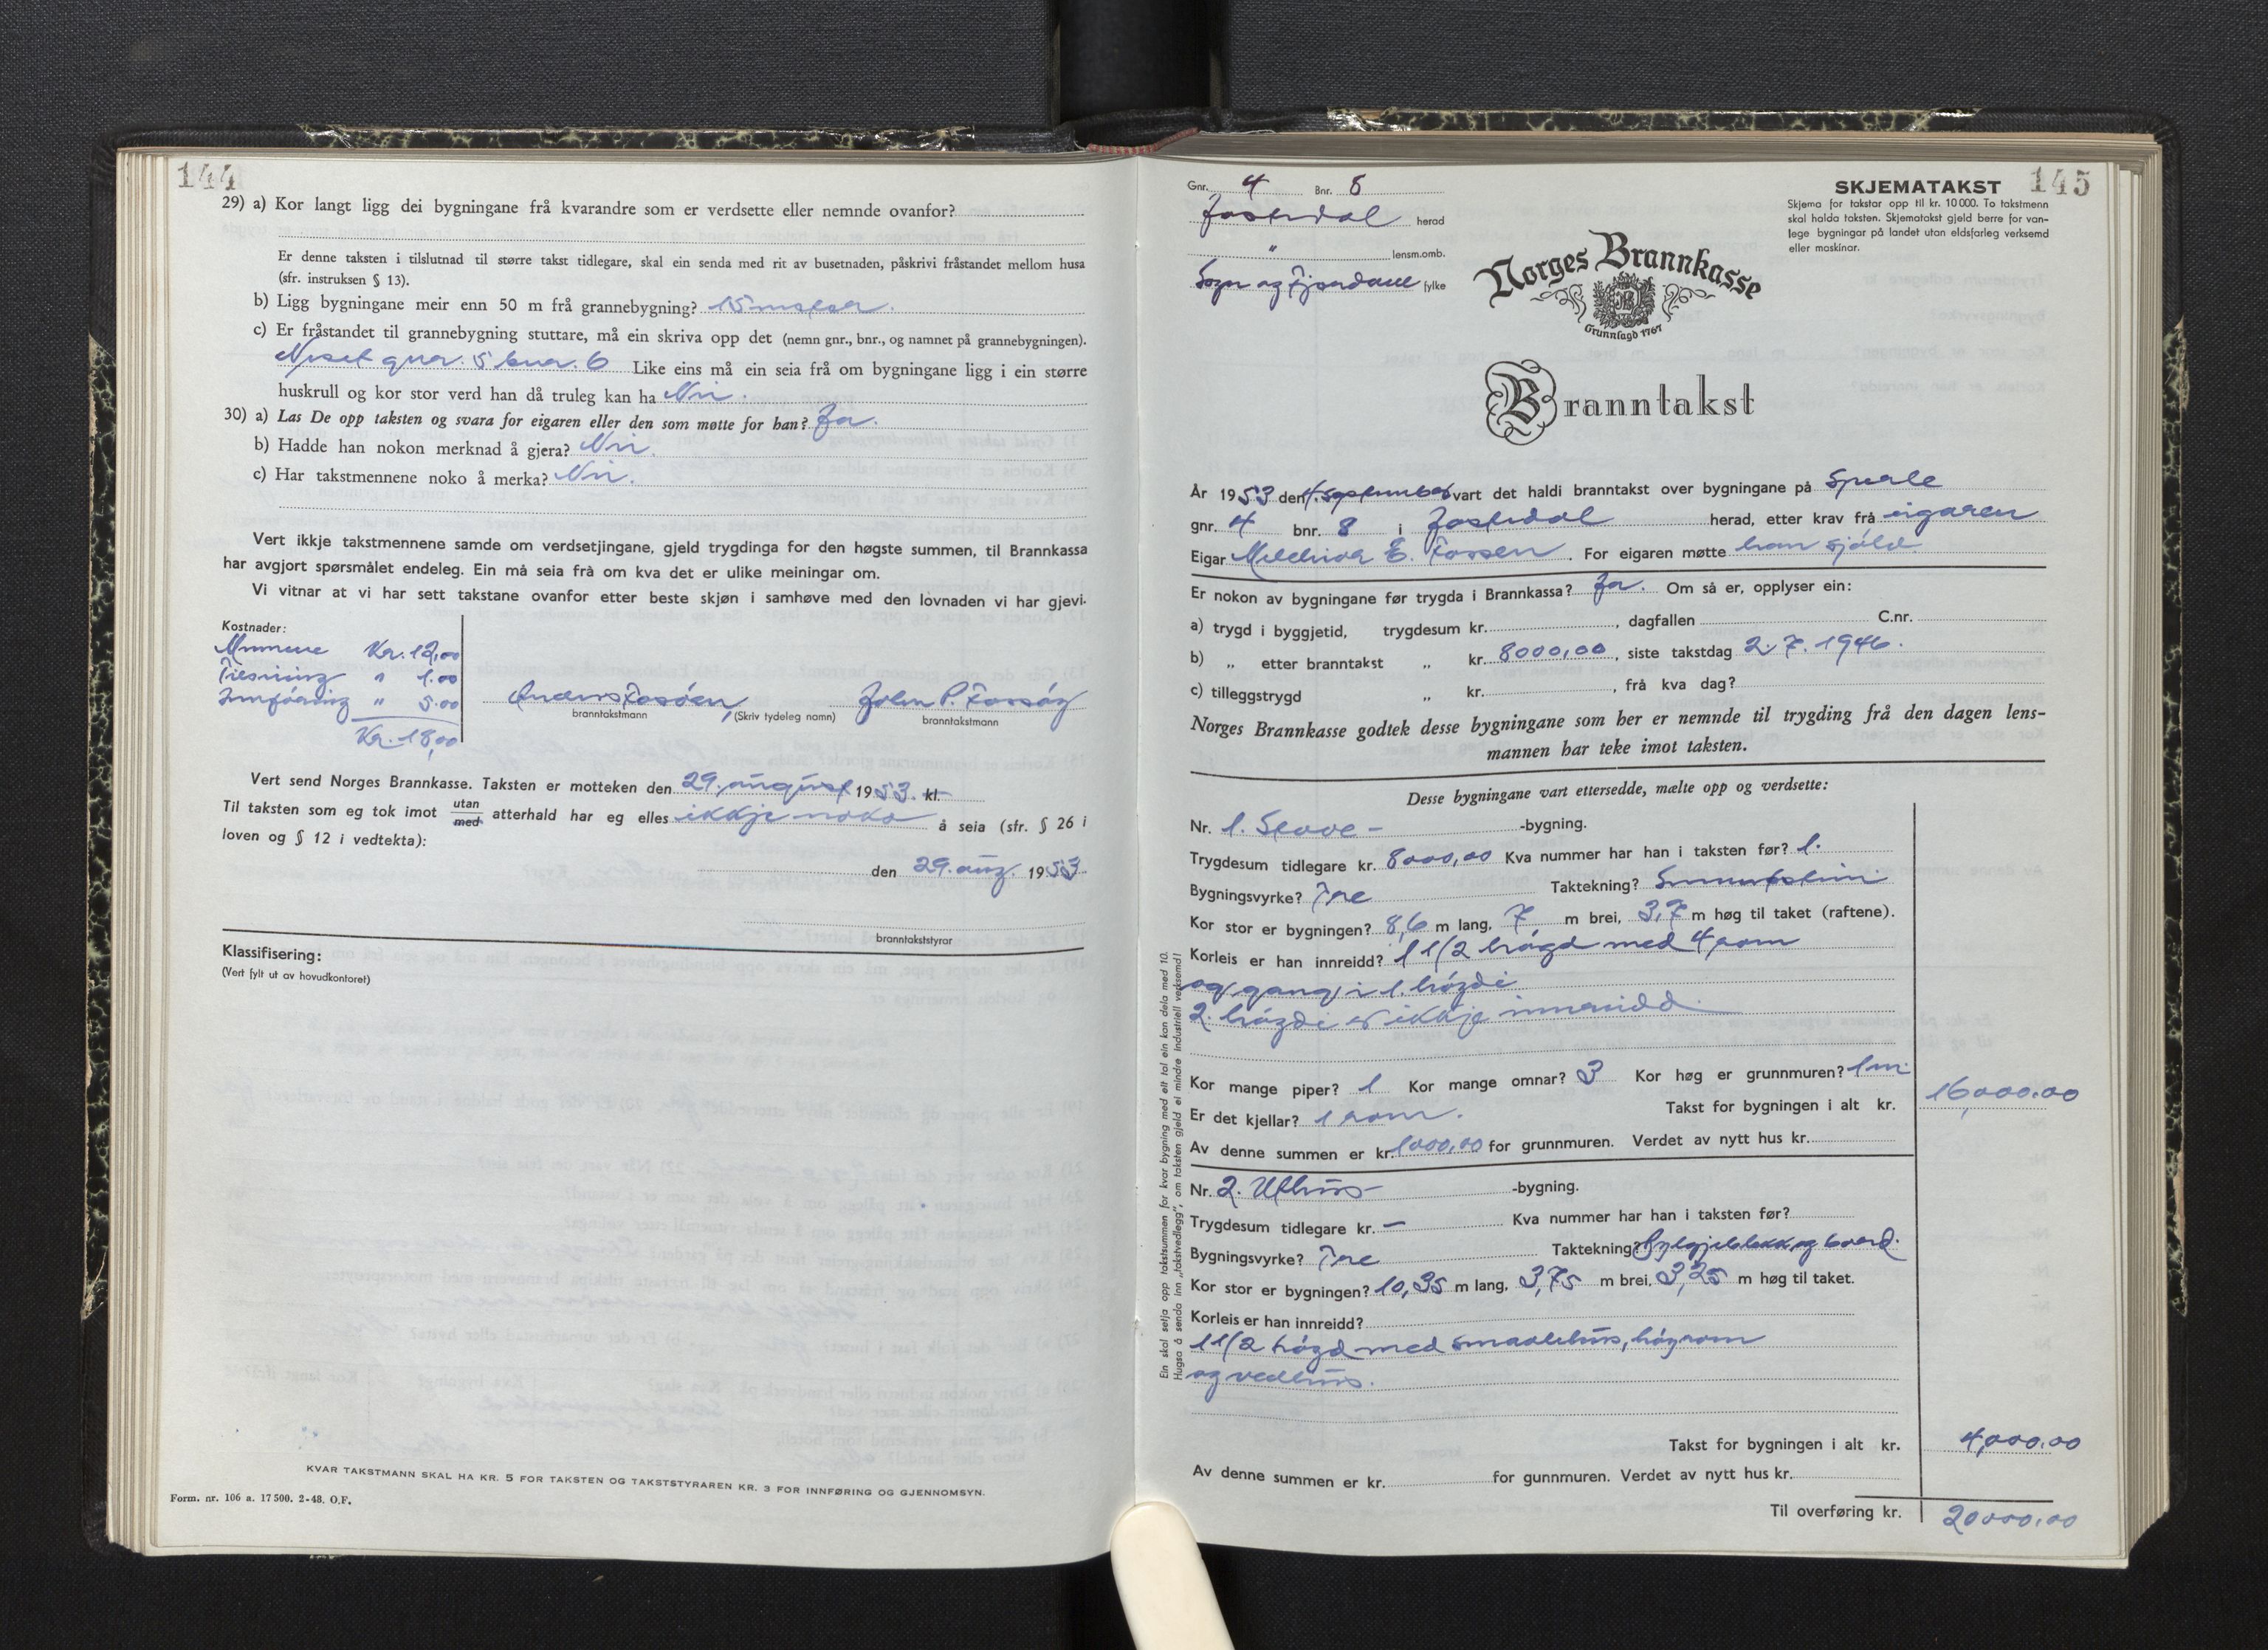 144
29) a) Kor langt ligg dei bygningane frå kvarandre som er verdsette eller nemnde ovanfor?
Er denne taksten i tilslutnad til større takst tidlegare, skal ein senda med rit av busetnaden, påskrivi fråstandet mellom husa
(sfr. instruksen § 13).
b) Ligg bygningane meir enn 50 m frå grannebygning? 15 meter.
c) Er fråstandet til grannebygning stuttare, må ein skriva opp det (nemn gnr., bnr., og namnet på grannebygningen).
gnr. 5 bnr. 6 Like eins må ein seia frå om bygningane ligg i ein større
huskrull og kor stor verd han då truleg kan ha Nei.
30) a) Las De opp taksten og svara for eigaren eller den som møtte for han? Ja.
b) Hadde han nokon merknad å gjera? Nei.
c) Har takstmennene noko å merka? Nei.
Vert ikkje takstmennene samde om verdsetjingane, gjeld trygdinga for den høgste summen, til Brannkassa
har avgjort spørsmålet endeleg. Ein må seia frå om kva det er ulike meiningar om.
Vi vitnar at vi har sett takstane ovanfor etter beste skjøn i samhøve med den lovnaden vi har gjevi.
Kostnader:
Mennene Kr. 12,00
" 1.00
Innføring " 5.00
Kr. 18,00
Anders Fossøen, John P. Fossøy
branntakstmann (Skriv tydeleg namn) branntakstmann
Vert send Norges Brannkasse. Taksten er motteken den 29. august 1953. kl.
Til taksten som eg tok imot utan med atterhald har eg elles ikkje noko å seia (sfr. § 26 i
loven og § 12 i vedtekta):
den 29. aug. 1953.
branntakststyrar
Klassifisering:
(Vert fylt ut av hovudkontoret)
KVAR TAKSTMANN SKAL HA KR. 5 FOR TAKSTEN OG TAKSTSTYRAREN KR. 3 FOR INNFØRING OG GJENNOMSYN.
Form. nr. 106 a. 17 500. 2-48. O.F.
145
Gnr. 4 Bnr. 8
Jostedal herad
" lensm.omb.
Sogn og Fjordane fylke
SKJEMATAKST
Skjema for takstar opp til kr. 10 000. To takstmenn
skal halda taksten. Skjematakst gjeld berre for van-
lege bygningar på landet utan eldsfarleg verksemd
eller maskinar.
Norges Brannkasse
Grunnlagd 1767
Branntakst
År 1953 den 4. september vart det haldi branntakst over bygningane på Sperle
gnr. 4 bnr. 8 i Jostedal herad, etter krav frå eigaren
Eigar Melchior E. Fossen. For eigaren møtte han sjølv
Er nokon av bygningane før trygda i Brannkassa? Ja. Om så er, opplyser ein:
a) trygd i byggjetid, trygdesum kr. , dagfallen C.nr.
b) „ etter branntakst „ kr. 8000,00, siste takstdag 2. 7. 1946.
c) tilleggstrygd „ kr. , frå kva dag?
Norges Brannkasse godtek desse bygningane som her er nemnde til trygding frå den dagen lens-
mannen har teke imot taksten.
Desse bygningane vart ettersedde, mælte opp og verdsette:
Nr. 1. Stove- -bygning.
Trygdesum tidlegare kr. 8000,00 Kva nummer har han i taksten før? 1.
Bygningsvyrke? Tre Taktekning? Sementstein
Kor stor er bygningen? 8,6 m lang, 7 m brei, 3,7 m høg til taket (raftene).
Korleis er han innreidd? 1 1/2 høgd med 4 rom
og gang i 1. høgdi
2. høgdi er ikkje innreidd.
Kor mange piper? 1 Kor mange omnar? 3 Kor høg er grunnmuren? 1 m.
Er det kjellar? 1 rom. Takst for bygningen i alt kr. 16,000.00
Av denne summen er kr. 1000,00 for grunnmuren. Verdet av nytt hus kr.
Nr. 2. Uthus- -bygning.
Trygdesum tidlegare kr. – Kva nummer har han i taksten før?
Bygningsvyrke? Tre Taktekning? Bylgjeblekk og bord.
Kor stor er bygningen? 10,35 m lang, 3,75 m brei, 3,25 m høg til taket.
Korleis er han innreidd?
1 1/2 høgd med smalehus, høyrom
og vedhus.
Takst for bygningen i alt kr. 4,000.00
Av denne summen er kr. for gunnmuren. Verdet av nytt hus kr.
Til overføring kr. 20000,00
Ein skal setja opp takstsummen for kvar bygning med eit tal ein kan dela med 10.
Hugsa å senda inn „takstvedlegg”, om taksten gjeld ei mindre industriell verksemd!